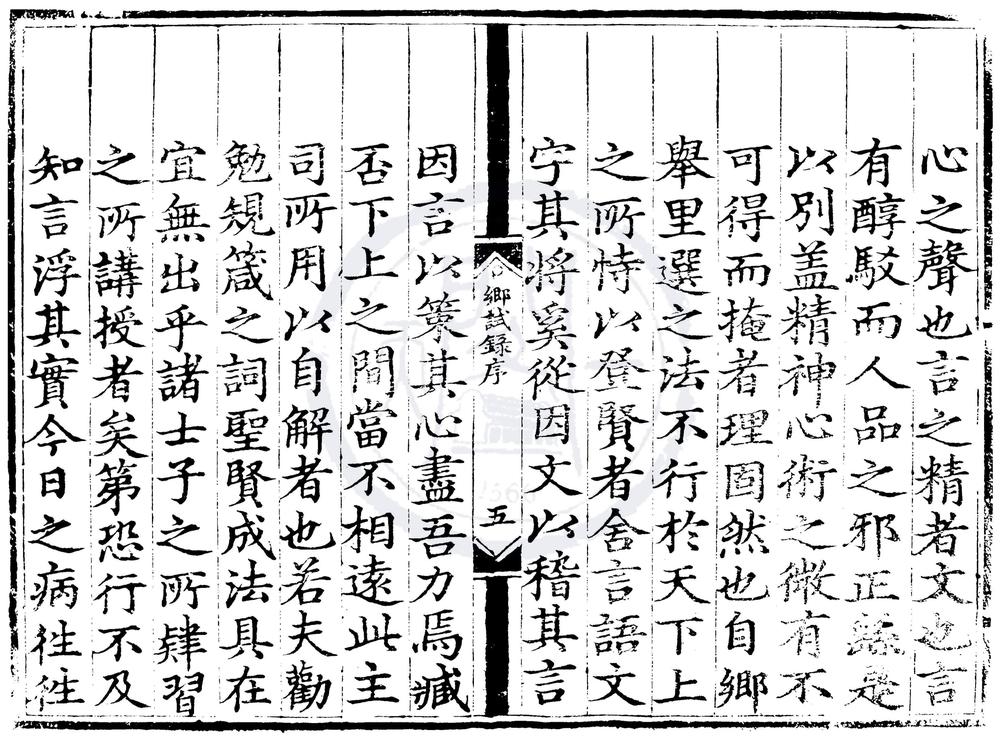 心之聲也言之精者文也言
有醇駁而人品之邪正繇是
以別盖精神心術之微有不
可得而掩者理固然也自鄉
舉里選之法不行於天下上
之所恃以登賢者舍言語文
字其將奚從因文以稽其言
鄉試錄序
五
因言以策其心盡吾力焉臧
否下上之間當不相遠此主
司所用以自解者也若夫勸
勉規箴之詞聖賢成法具在
宜無出乎諸士子之所肄習
之所講授者矣第恐行不及
知言浮其實今日之病徃徃